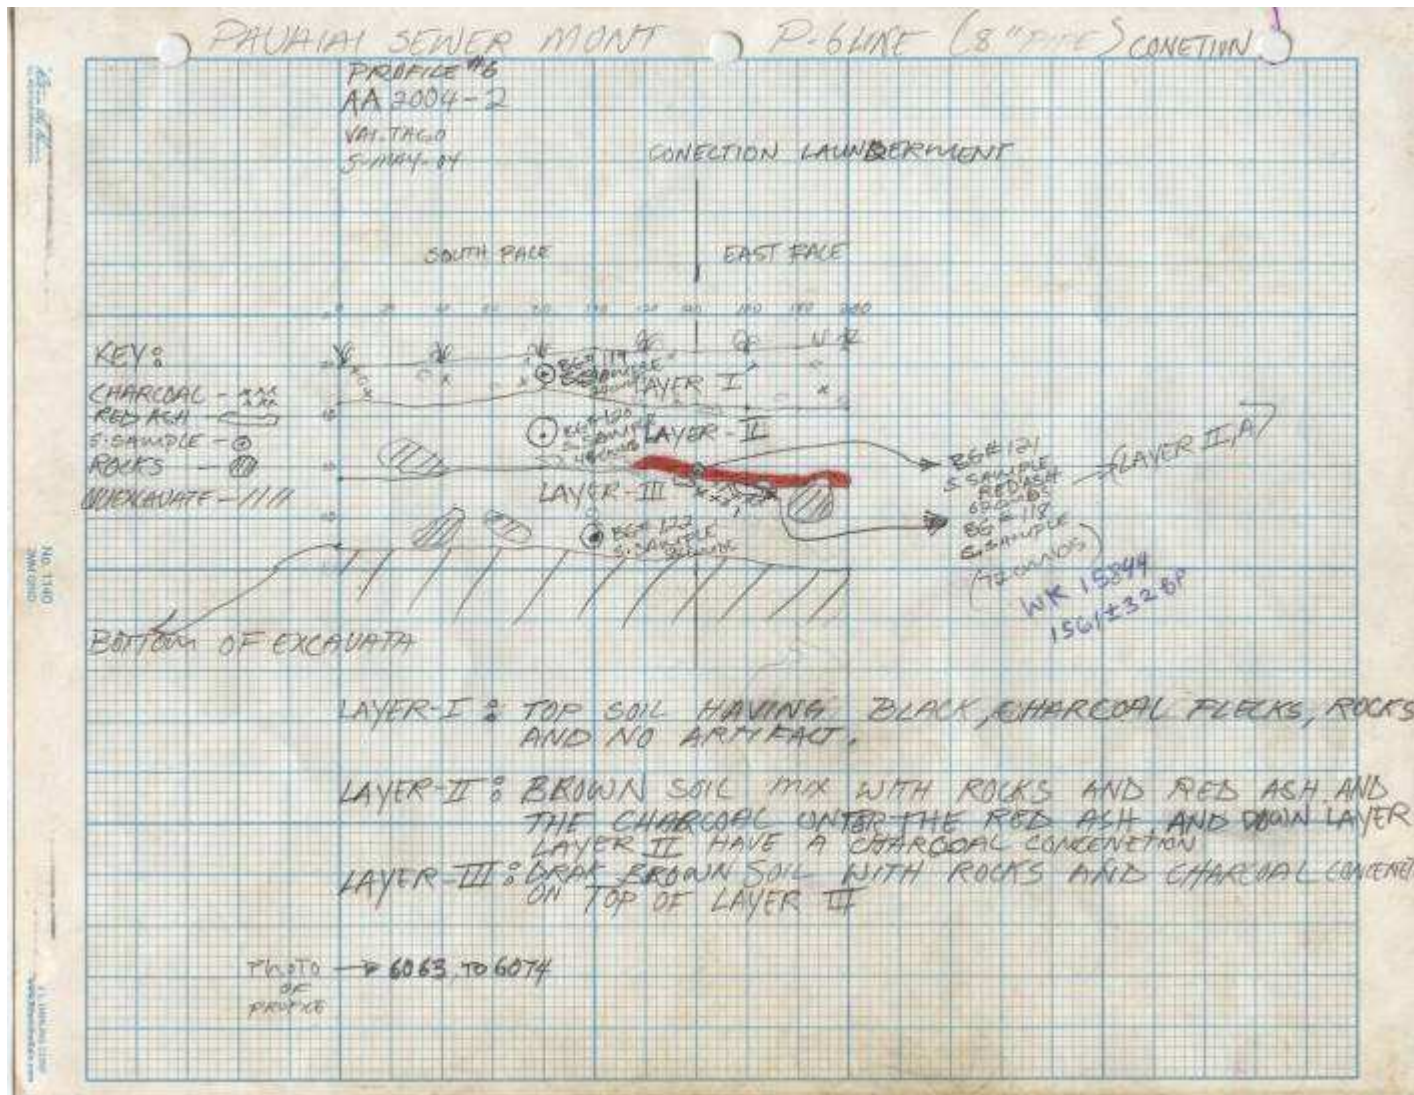 PAVAIAI SEWER MONT P-6 LINE (8" PIPE) CONETION
PROFILE #6
AA 2004-2
VAI. TAGO
5-MAY-04
CONECTION LAUNDERMENT
SOUTH FACE EAST FACE
KEY:
CHARCOAL -
RED ASH -
S. SAMPLE -
ROCKS -
UNEXCAVATE -
BG# 119
S. SAMPLE
LAYER I
BG# 120
S. SAMPLE
LAYER-II
LAYER-III
BG# 122
S. SAMPLE
BG# 121
S. SAMPLE
RED ASH
BG# 118
S. SAMPLE
(LAYER II, A)
WK 15844
1561±32 BP
BOTTOM OF EXCAVATA
LAYER-I : TOP SOIL HAVING BLACK, CHARCOAL FLECKS, ROCKS
AND NO ARTYFACT.
LAYER-II : BROWN SOIL MIX WITH ROCKS AND RED ASH AND
THE CHARCOAL UNTER THE RED ASH AND DOWN LAYER
LAYER II HAVE A CHARCOAL CONCENETION
LAYER-III : DRAK BROWN SOIL WITH ROCKS AND CHARCOAL CONCENET
ON TOP OF LAYER III
PHOTO → 6063, TO 6074
OF
PROFICE
No. 1140